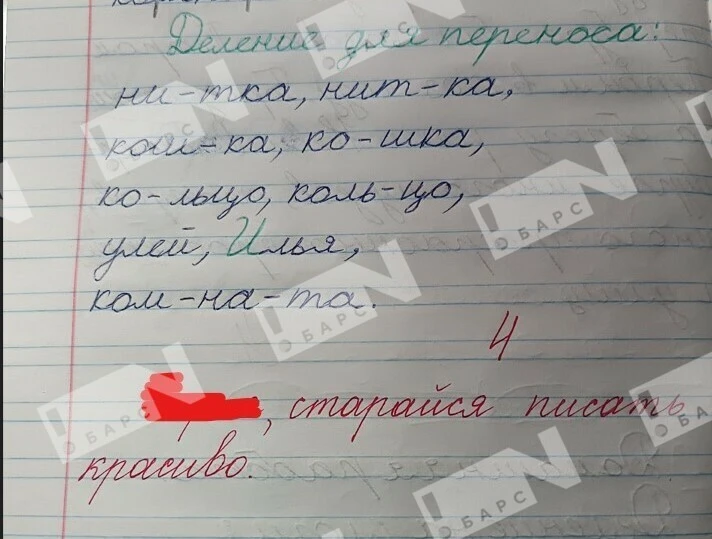 Деление для переноса:
ни-тка, нит-ка,
кош-ка, ко-шка,
ко-льцо, коль-цо,
улей, Илья,
ком-на-та.
4
, старайся писать
красиво.
БАРС
БАРС
БАРС
БАРС
БАРС